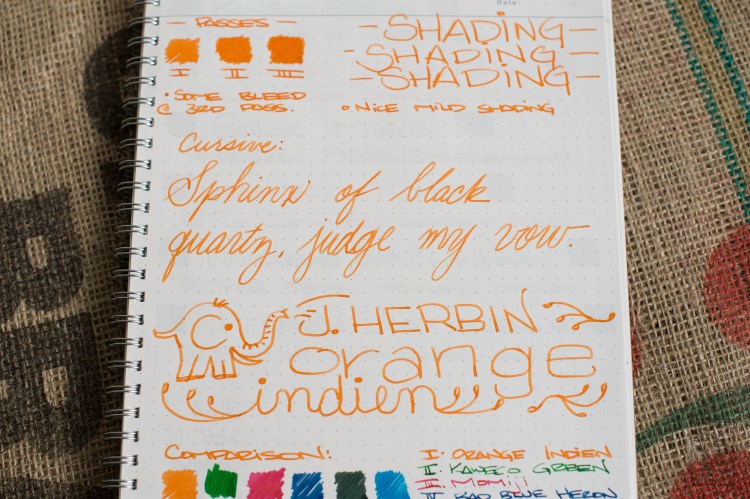 Date:
- PASSES -
I II III
• SOME BLEED
@ 3RD PASS.
- SHADING -
- SHADING -
- SHADING -
• NICE MILD SHADING
Cursive:
Sphinx of black
quartz, judge my vow.
J. HERBIN
orange
indien
COMPARISON:
I. ORANGE INDIEN
II. KAWECO GREEN
III. MOMIJI
IV KAD BLUE HERON